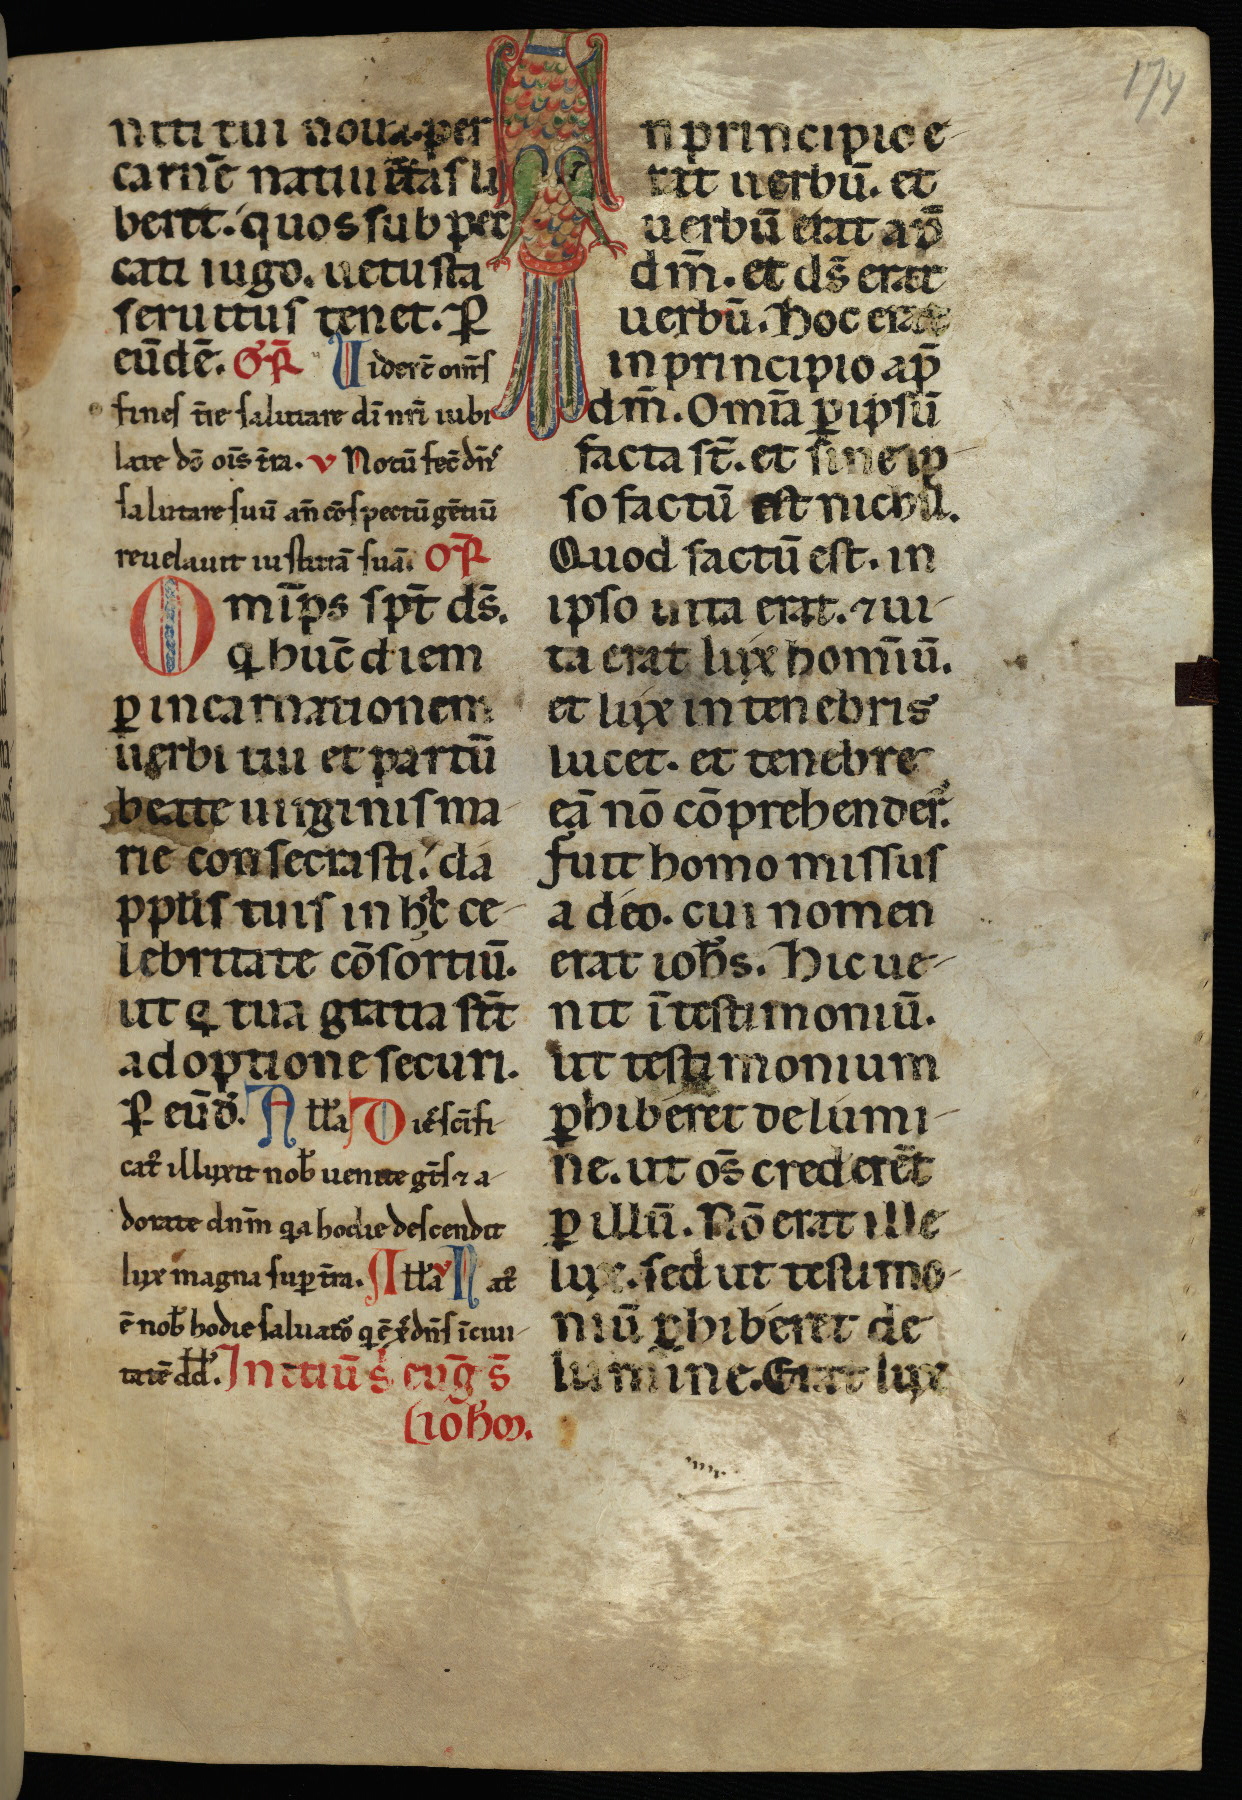 174
niti tui noua per
carnē natiuitas li
beret. quos sub pec
cati iugo. uetusta
seruitus tenet. P̄
eūdē. GR̄ Uiderē̄ om̄s
fines t̄re salutare dī nr̄i iubi
late dō oīs t̄ra. v Notū fec̄ dn̄s
salutare suū an̄ cōspectū gētiū
reuelauit iustitiā suā. OR̄
Omīps spt̄ ds̄.
q hūc diem
ꝑ incarnationem
uerbi tui et partū
beate uirginis ma
rie consecrasti. da
pplīs tuis in hc̄ ce-
lebritate cōsortiū.
ut q tua gratia st̄
adoptione securi.
P̄ eūd̄. Allā Diēs sc̄ifi
cat᷑ illuxit nob̄ uenite gt̄s ⁊ a-
dorate dnm̄ qa hodie descendit
lux magna sup t̄ra. Allā Nat᷑
ē nob̄ hodie saluator᷑ q ē xp̄s dn̄s ī ciui-
tatē dd̄. Initiū s̄ euḡ s̄
ioh̄m.
n principio e-
rat uerbū. et
uerbū erat ap̄
dm̄. et ds̄ erat
uerbū. Hoc erat
in principio ap̄
dm̄. Omīa ꝑ ipsū
facta st̄. et sine ip-
so factū est nichil.
Quod factū est. in
ipso uita erat. ⁊ ui-
ta erat lux homīū.
et lux in tenebris
lucet. et tenebre
eā nō cōprehender̄.
fuit homo missus
a deo. cui nomen
erat ioh̄s. Hic ue-
nit ī testimoniū.
ut testimonium
ꝑhiberet de lumi-
ne. ut os̄ crederēt
ꝑ illū. Nō erat ille
lux. sed ut testimo-
niū ꝑhiberet de
lumine. Erat lux